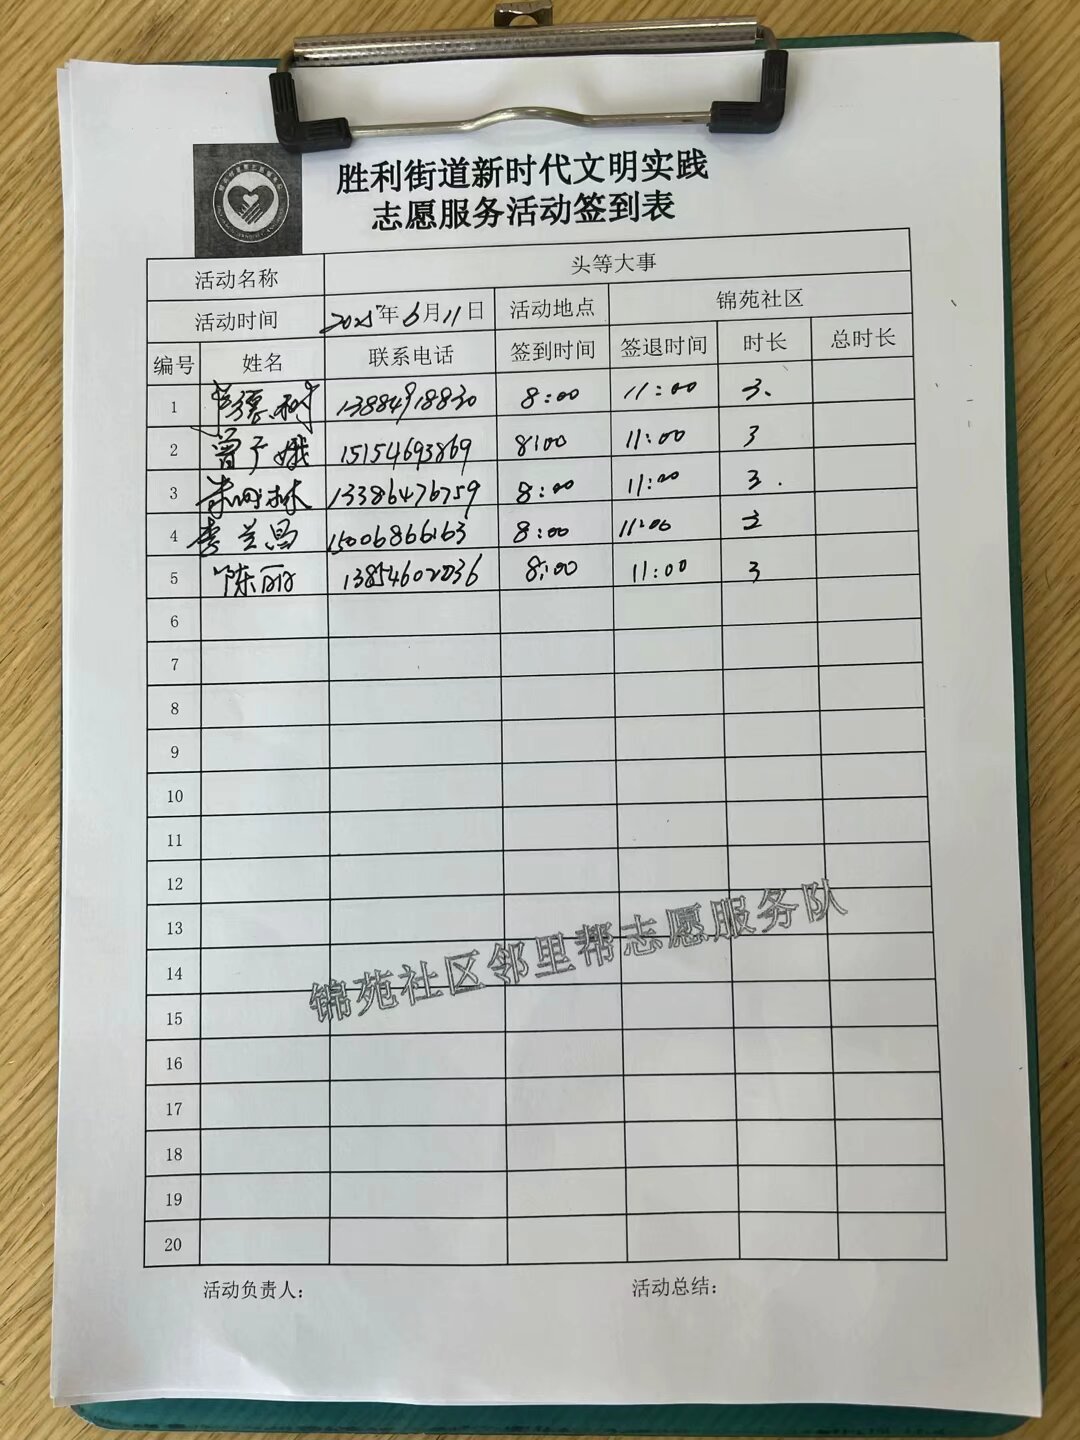 胜利街道新时代文明实践
志愿服务活动签到表
活动名称 头等大事
活动时间 2025年6月11日 活动地点 锦苑社区
编号 姓名 联系电话 签到时间 签退时间 时长 总时长
1 德树 13884918830 8:00 11:00 3.
2 曾子娥 15154693869 8:00 11:00 3
3 林 13386476759 8:00 11:00 3.
4 李兰昌 15006866163 8:00 11:00 3
5 陈丽 13854602036 8:00 11:00 3
6
7
8
9
10
11
12
13
14
15
16
17
18
19
20
锦苑社区邻里帮志愿服务队
活动负责人: 活动总结: